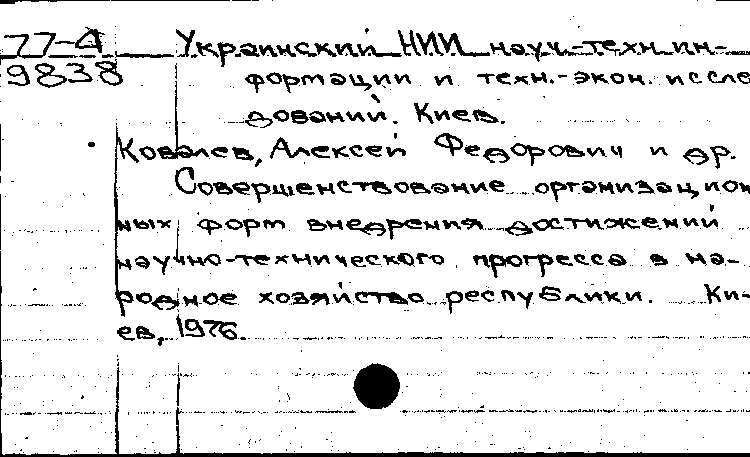 77-4 Украинский НИИ науч.-техн.ин-
9838 формации и техн.-экон. иссле
дований. Киев.
Ковалев, Алексей Федорович и др.
Совершенствование организацион
ных форм внедрения достижений
научно-технического прогресса в на-
родное хозяйство республики. Ки-
ев, 1976.